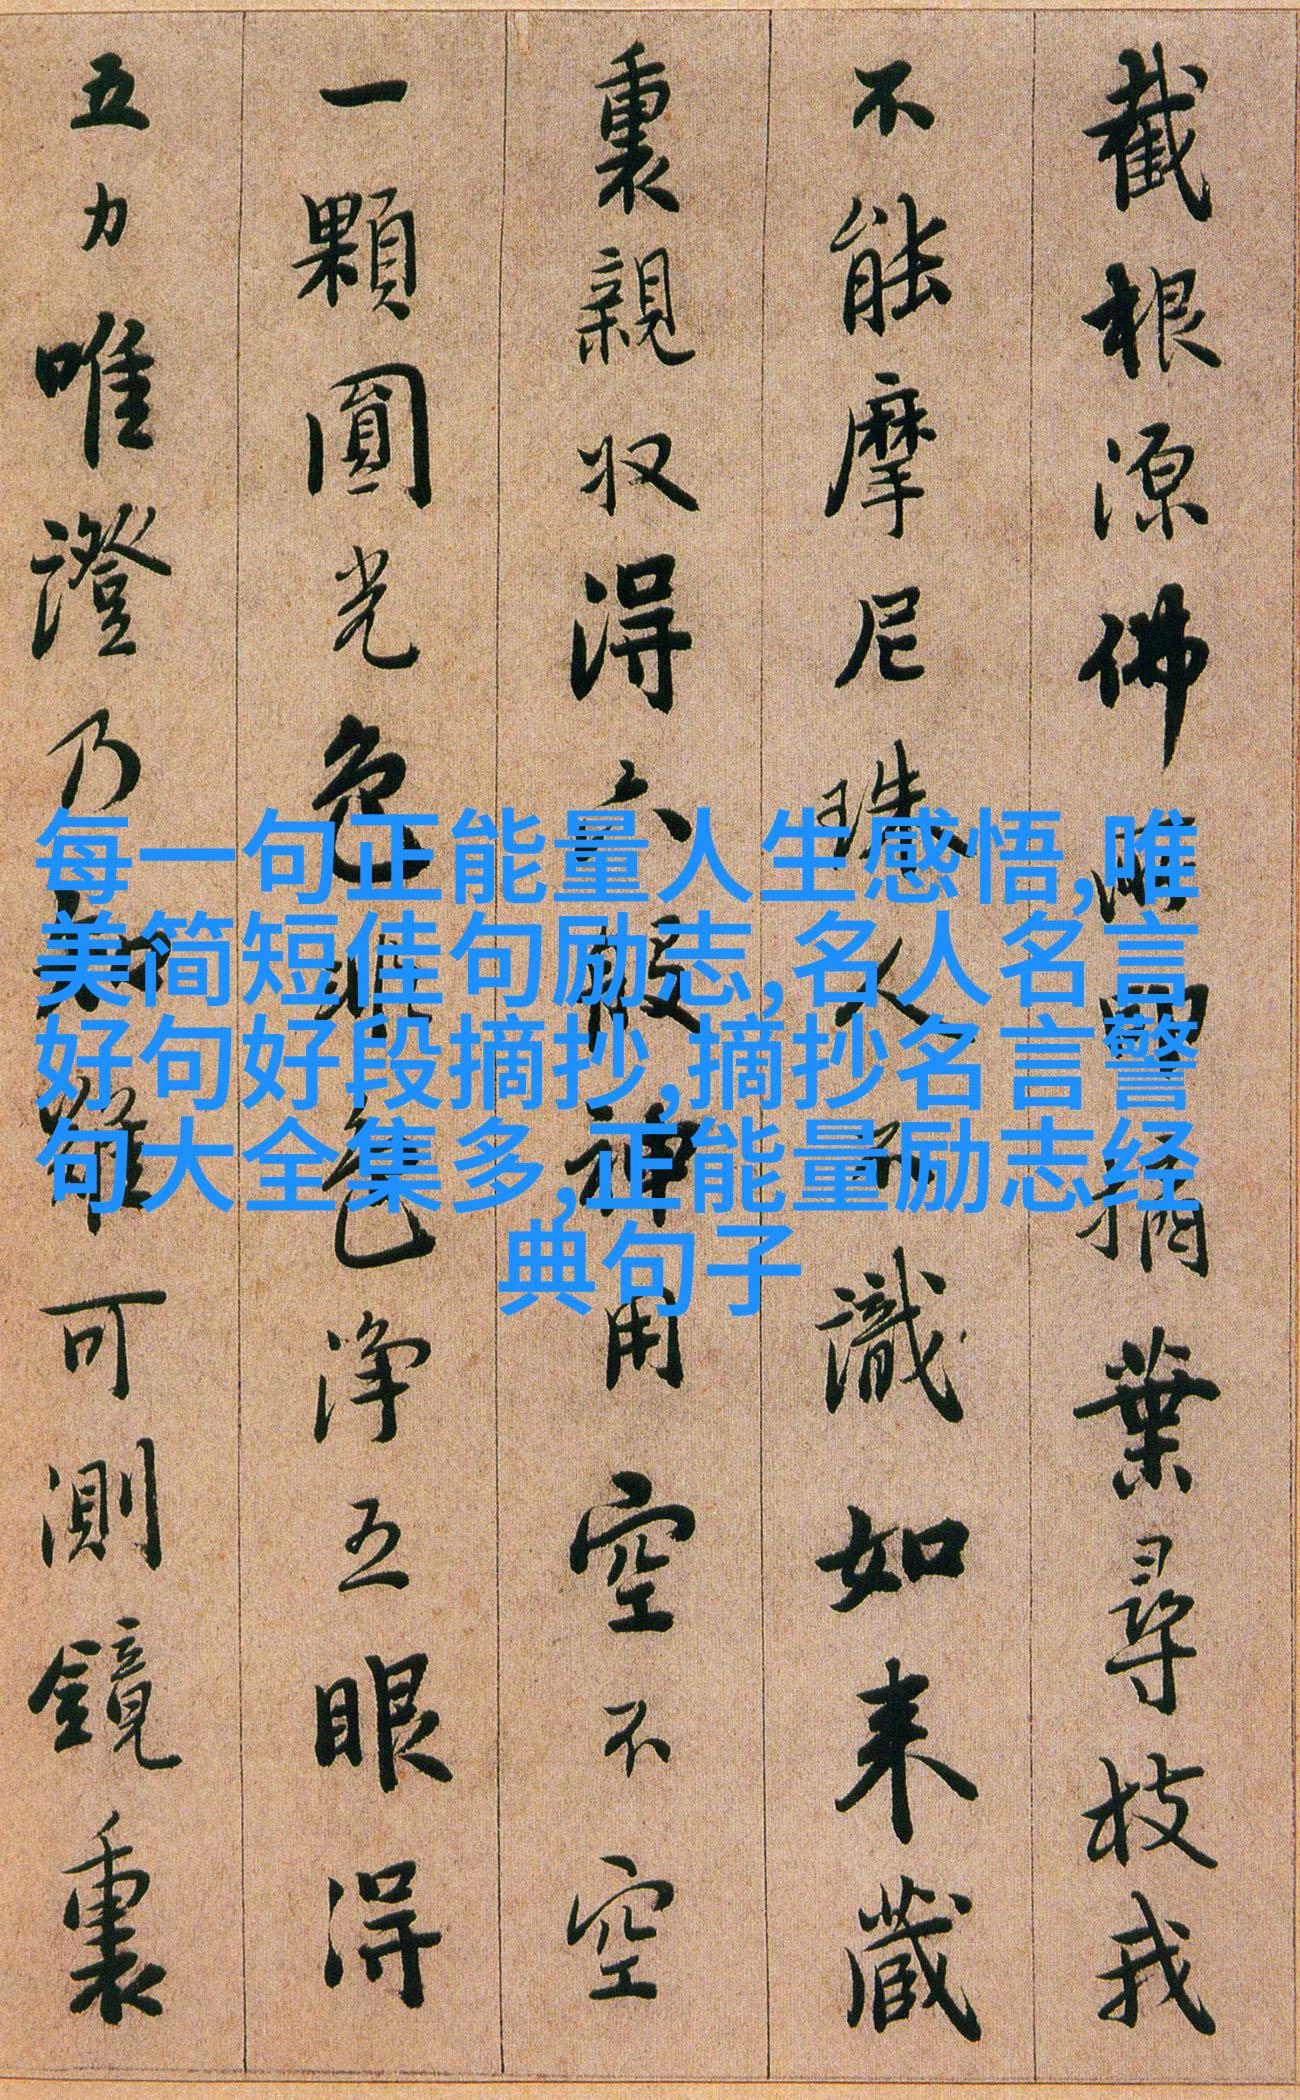 截根源佛所印摘葉尋枝我
不能摩尼珠人不識如来藏
裏親収得六般神用空不空
一顆圓光色非色淨五眼得
五力唯證乃知難可測鏡裏
每一句正能量人生感悟,唯
美简短佳句励志,名人名言
好句好段摘抄,摘抄名言警
句大全集多,正能量励志经
典句子